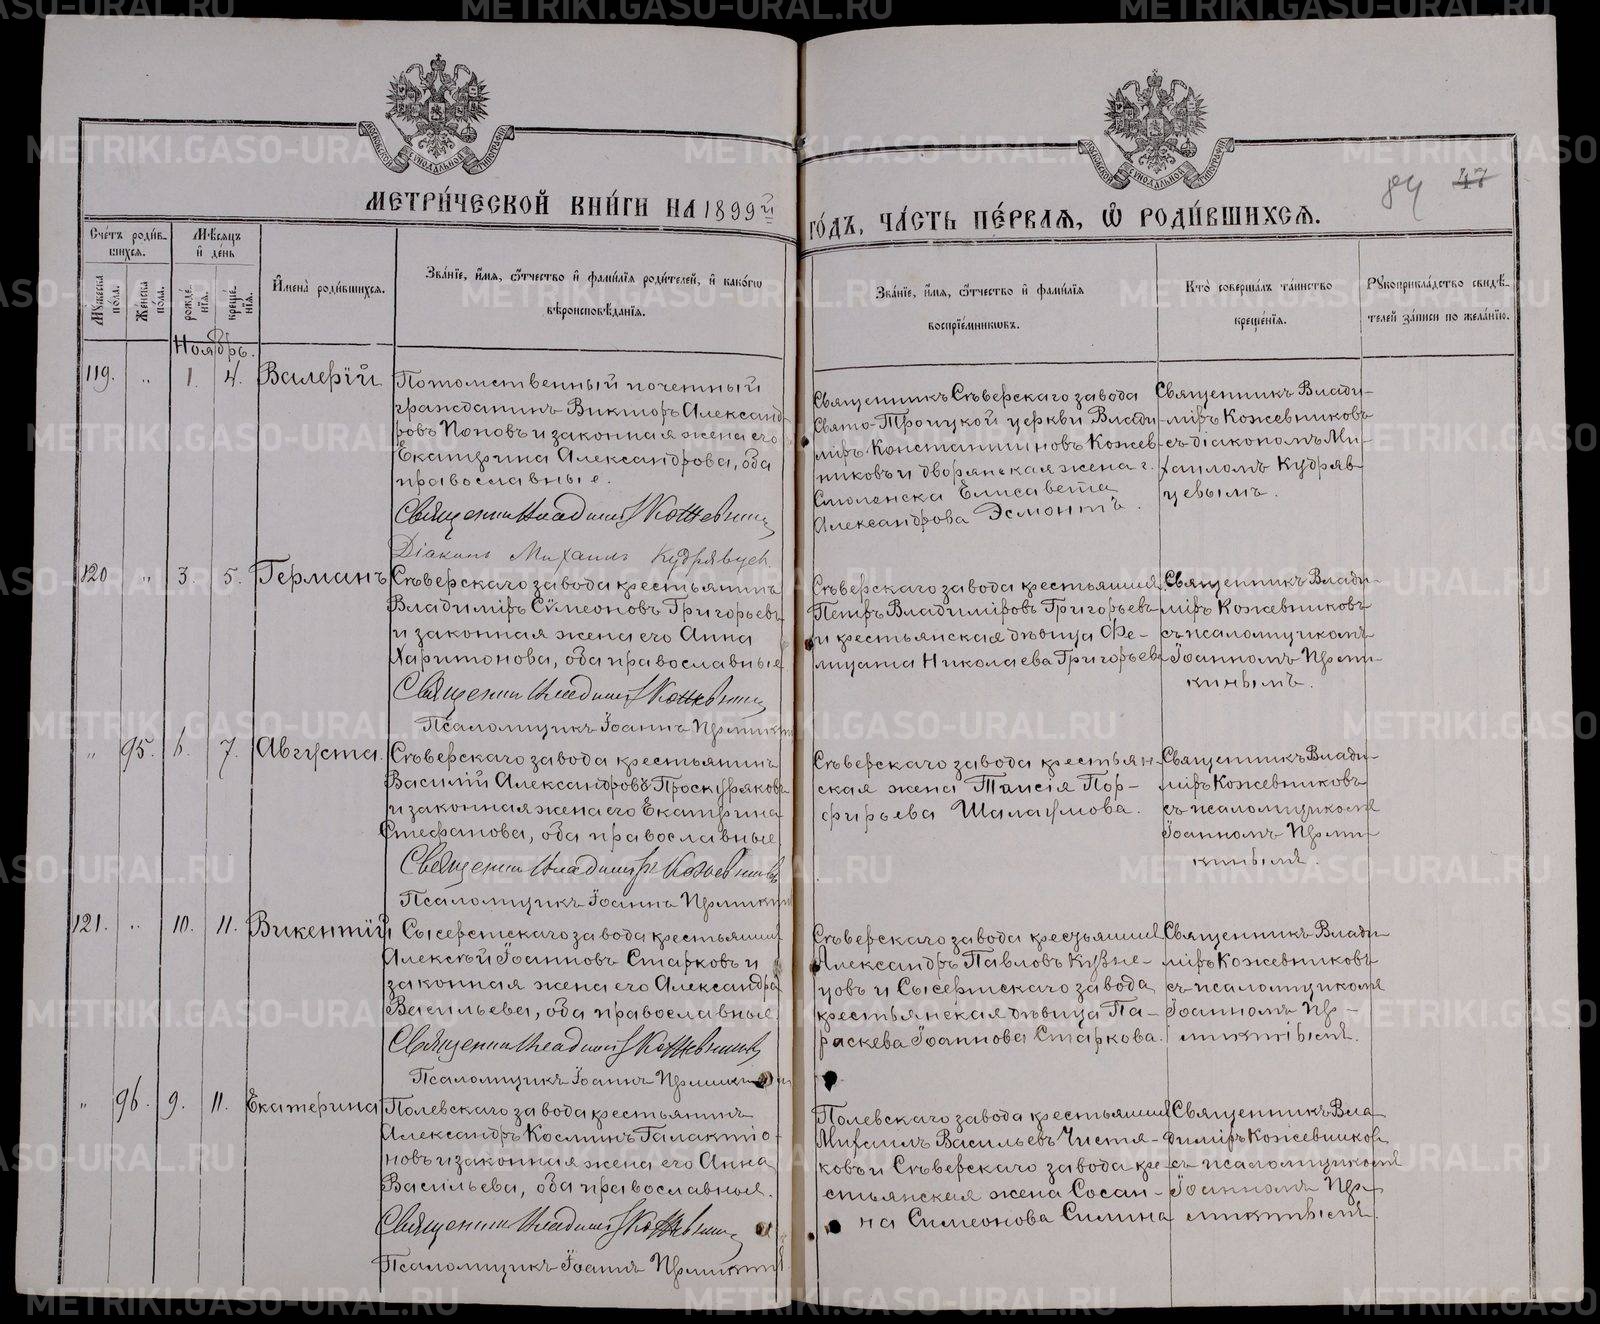 МЕТРИ́ЧЕСКОЙ КНИ́ГИ НА 1899й
ГО́ДЪ, ЧА́СТЬ ПЕ́РВАЯ, Ѿ РОДИ́ВШИХСЯ.
84 47
Сче́тъ роди́в-
шихся.
Мѣ́сяцъ
и҆ де́нь
Му́жеска
по́ла.
Же́нска
по́ла.
рожде́-
нїя.
креще́-
нїя.
И҆мена̀ роди́вшихся.
Зва́нїе, и҆́мя, ѻ҆́тчество и҆ фами́лїя роди́телей, и҆ како́гѡ
вѣроисповѣ́данїя.
Зва́нїе, и҆́мя, ѻ҆́тчество и҆ фами́лїя
воспрїе́мниковъ.
Кто̀ соверша́лъ та́инство
креще́нїя.
Рꙋкоприкла́дство свидѣ́-
телей за́писи по жела́нїю.
Ноябрь.
119. „ 1. 4. Валерій
Потомственный почетный
гражданинъ Викторъ Александ-
ровъ Поповъ и законная жена его
Екатерина Александрова, оба
православные.
Священникъ Владиміръ Кожевников
Діаконъ Михаилъ Кудрявцев
Священникъ Сѣверскаго завода
Свято-Троицкой церкви Влади-
міръ Константиновъ Кожев-
никовъ и дворянская жена г.
Смоленска Елисавета
Александрова Эсмонтъ.
Священникъ Влади-
міръ Кожевниковъ
съ діакономъ Ми-
хаиломъ Кудряв-
цевымъ.
120 „ 3. 5. Германъ
Сѣверскаго завода крестьянинъ
Владиміръ Сѵмеоновъ Григорьевъ
и законная жена его Анна
Харитонова, оба православные
Священник Владимір Кожевников
Псаломщикъ Іоаннъ
Сѣверскаго завода крестьянинъ
Петръ Владиміровъ Григорьевъ
и крестьянская дѣвица Фе-
лицата Николаева Григорьева
Священникъ Влади-
міръ Кожевниковъ
съ псаломщикомъ
Іоанномъ
„ 95. 6. 7. Августа
Сѣверскаго завода крестьянинъ
Василій Александровъ Проскуряковъ
и законная жена его Екатерина
Стефанова, оба православные
Священник Владимір Кожевниковъ
Псаломщикъ Іоаннъ
Сѣверскаго завода крестьян-
ская жена Таисія Пор-
фирьева Шалаумова.
Священникъ Влади-
міръ Кожевниковъ
съ псаломщикомъ
Іоанномъ
121. „ 10. 11. Викентій
Сысертскаго завода крестьянинъ
Алексѣй Іоанновъ Старковъ и
законная жена его Александра
Васильева, оба православные
Священник Владимір Кожевников
Псаломщикъ Іоаннъ
Сѣверскаго завода крестьянинъ
Александръ Павловъ Кузне-
цовъ и Сысертскаго завода
крестьянская дѣвица Па-
раскева Іоаннова Старкова.
Священникъ Влади-
міръ Кожевниковъ
съ псаломщикомъ
Іоанномъ
„ 96. 9. 11. Екатерина
Полевскаго завода крестьянинъ
Александръ Косминъ Галактіо-
новъ и законная жена его Анна
Васильева, оба православные.
Священник Владимір Кожевников
Псаломщикъ Іоаннъ
Полевскаго завода крестьянинъ
Михаилъ Васильевъ Чистя-
ковъ и Сѣверскаго завода кре-
стьянская жена Сосан-
на Симеонова Силина
Священникъ Вла-
диміръ Кожевников
съ псаломщикомъ
Іоанномъ
METRIKI.GASO-URAL.RU